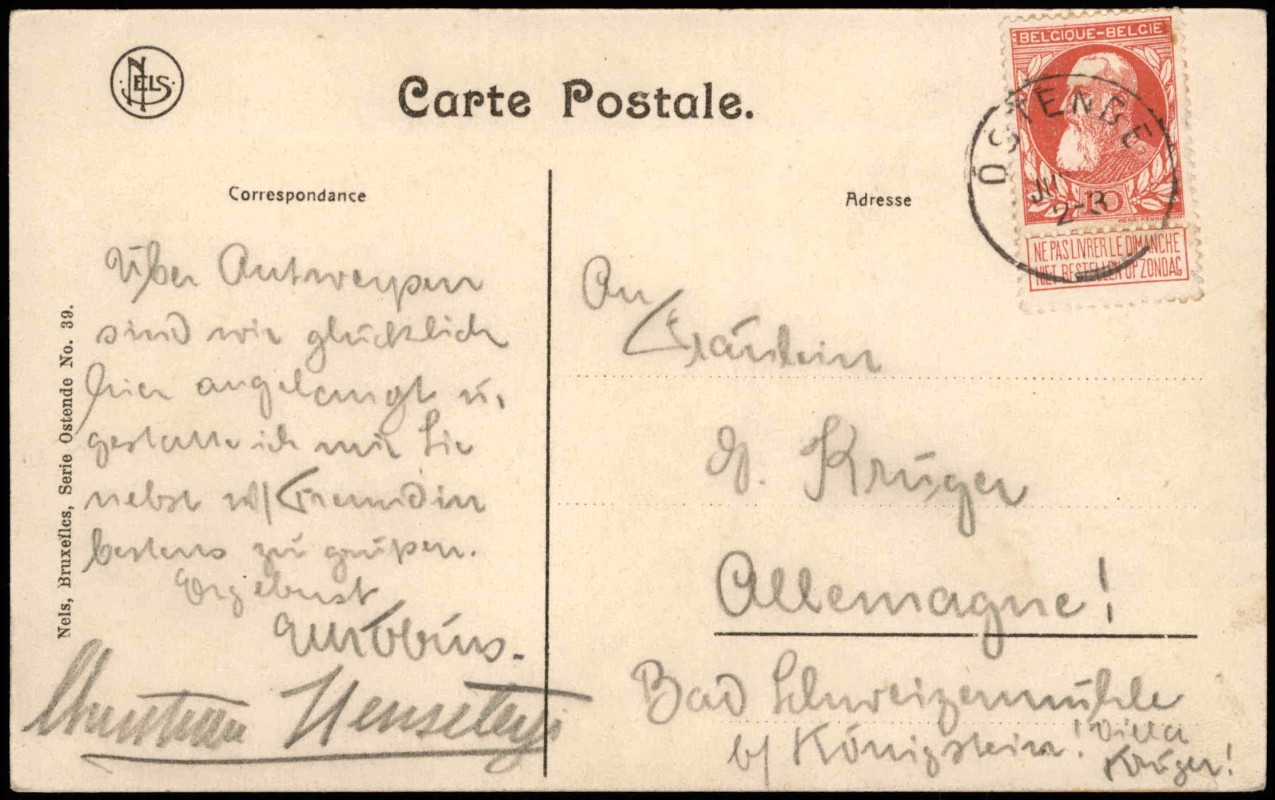 NELS
Carte Postale.
BELGIQUE-BELGIE
OSTENDE
JUI
2-13
10
NE PAS LIVRER LE DIMANCHE
NIET BESTELLEN OP ZONDAG
Correspondance
Adresse
Über Antwerpen
sind wir glücklich
hier angelangt u.
gestatte ich mir Sie
nebst w/ Freundin
bestens zu grüßen.
Ergebenst
An
Fräulein
Krüger
Allemagne!
Bad Schweizermühle
b/ Königstein! Villa
Krüger!
Nels, Bruxelles, Serie Ostende No. 39.